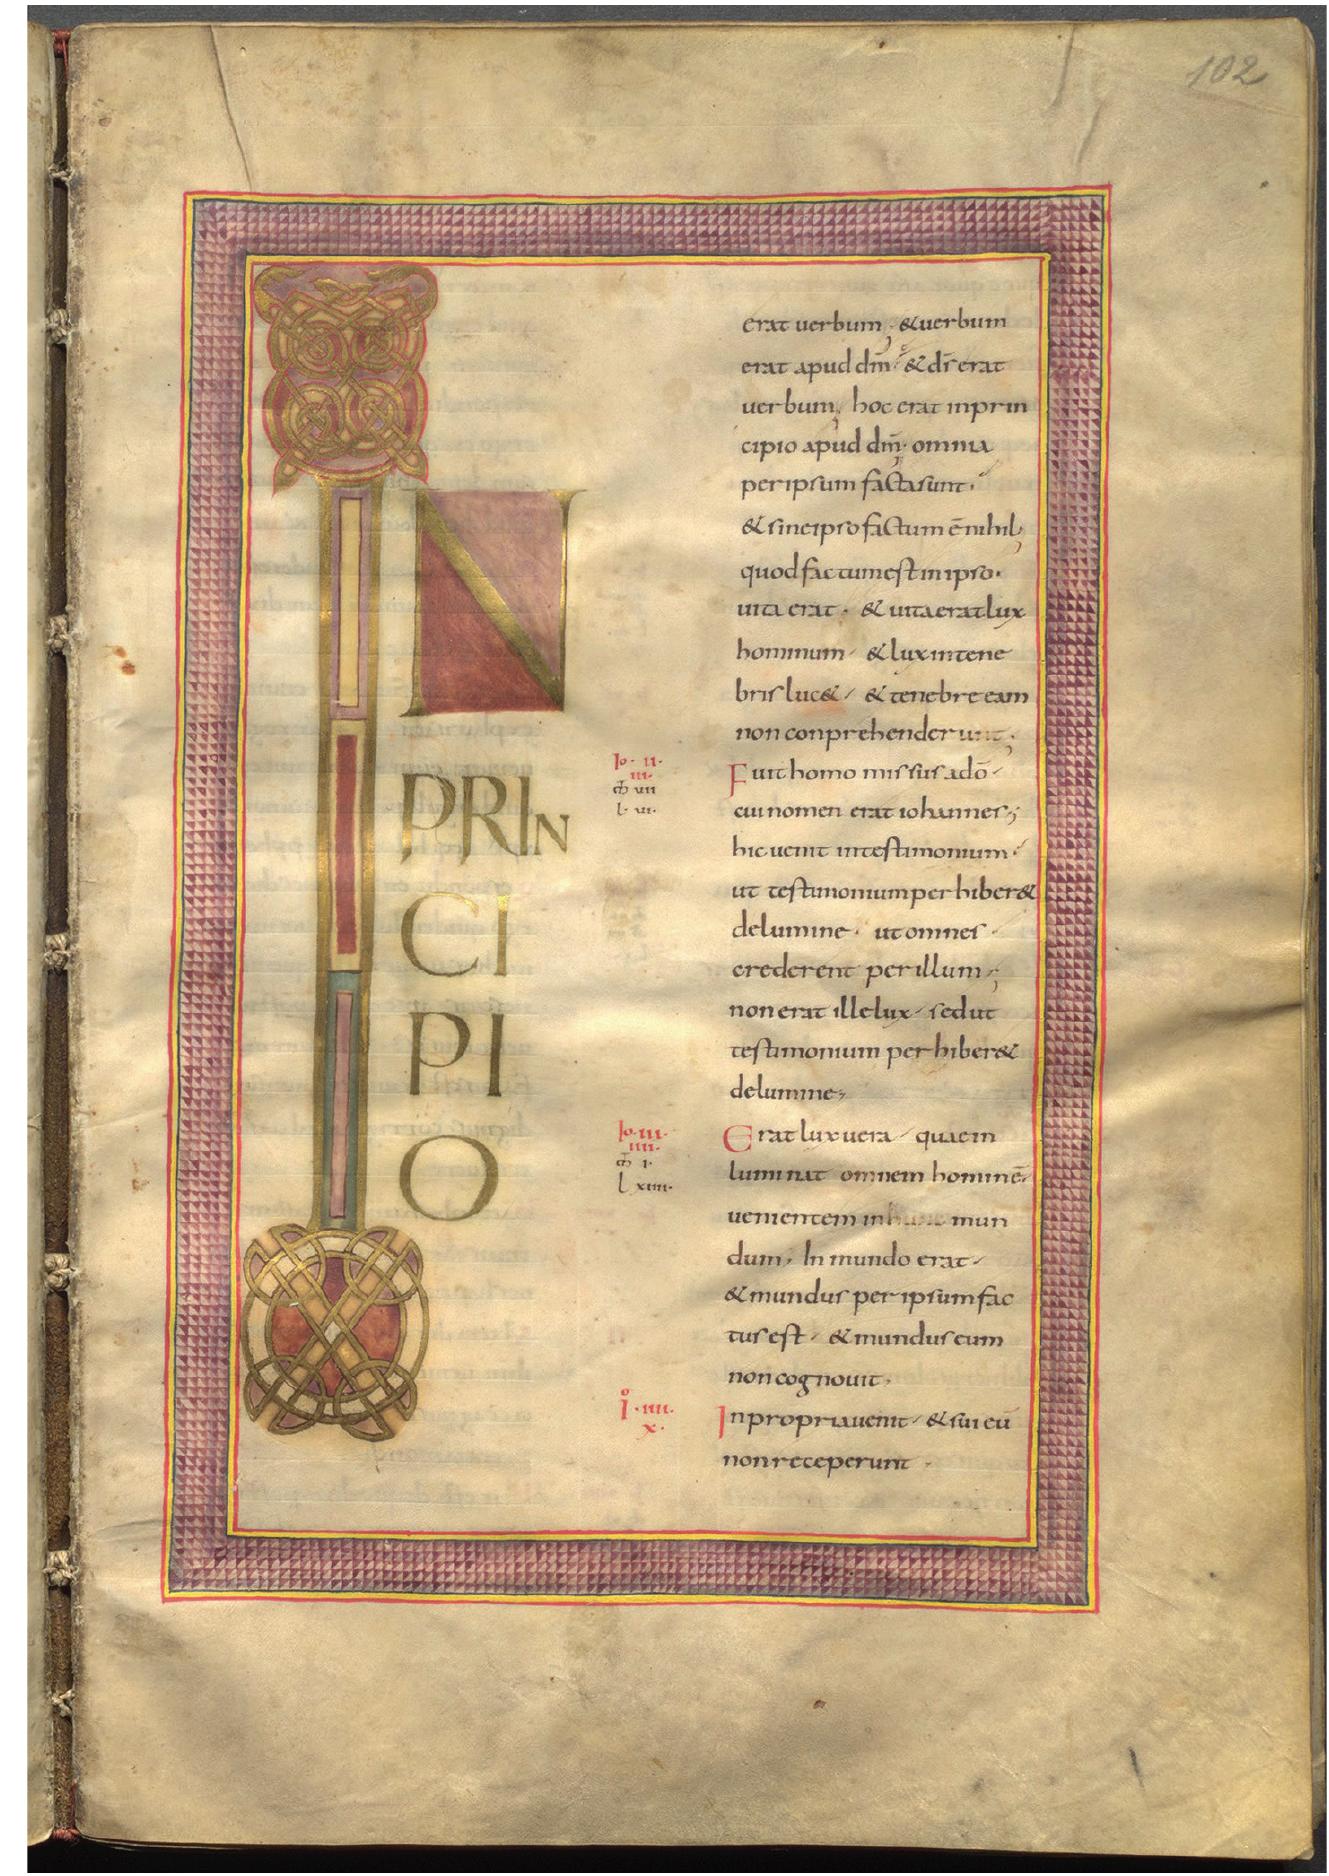 102
IN
PRIN
CI
PI
O
erat uerbum · & uerbum
erat apud dm̄ · & dr̄ erat
uerbum, hoc erat inprin
cipio apud dm̄· omnia
per ipsum facta sunt·
& sine ipso factum ē nihil,
quod factum est in ipso·
uita erat · & uita erat lux
hominum · & lux in tene
bris luc& · & tenebre eam
non conprehenderunt·
Io · II·
III·
m̄ VII
l· VI·
Fuit homo missus a dō·
cui nomen erat iohannes;
hic uenit in testimonium·
ut testimonium per hiber&
de lumine · ut omnes·
crederent per illum;
non erat ille lux · sed ut
testimonium per hiber&
de lumine;
Io· III·
IIII·
m̄ I·
l XIIII·
Erat lux uera · quae in
luminat omnem hominē·
uenientem in hunc mun
dum· In mundo erat·
& mundus per ipsum fac
tus est · & mundus eum
non cognouit·
Io · IIII·
X·
In propria uenit · & sui eū
non receperunt ·